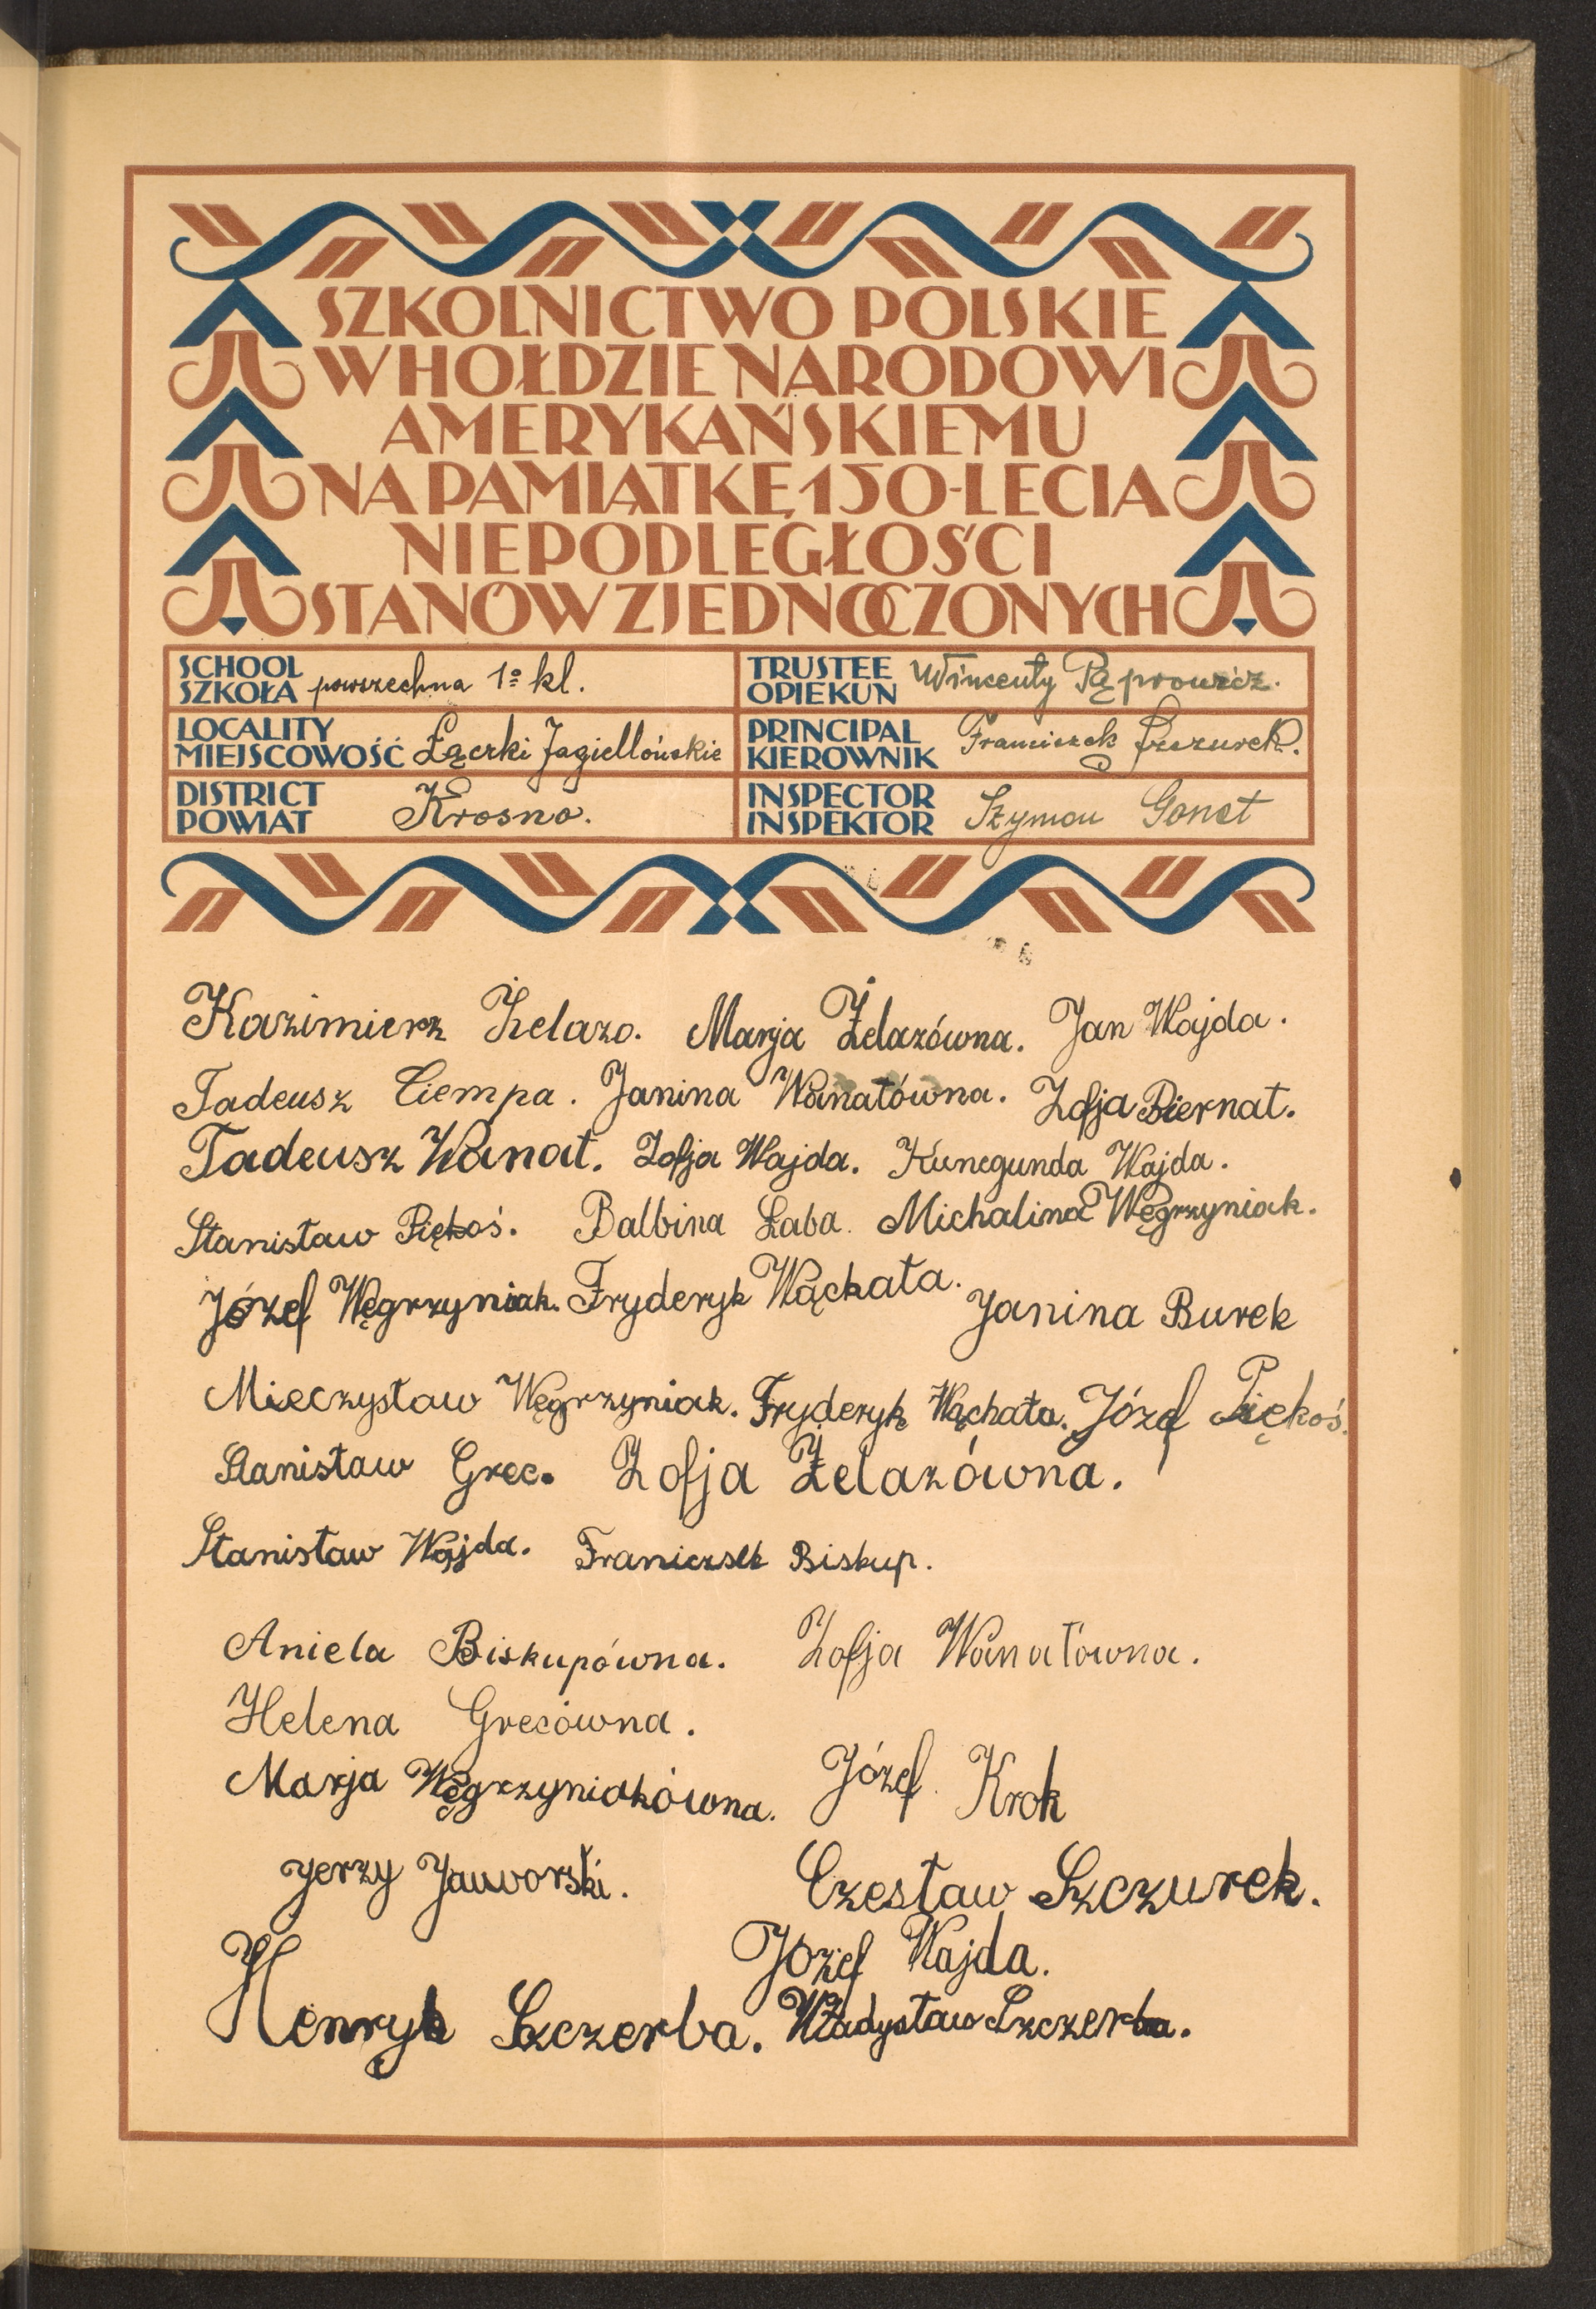 SZKOLNICTWO POLSKIE
W HOŁDZIE NARODOWI
AMERYKAŃSKIEMU
NA PAMIĄTKĘ 150-LECIA
NIEPODLEGŁOŚCI
STANÓW ZJEDNOCZONYCH
SCHOOL
SZKOŁA powszechna 1o kl.
TRUSTEE
OPIEKUN Wincenty Pąprowicz.
LOCALITY
MIEJSCOWOŚĆ Łączki Jagiellońskie
PRINCIPAL
KIEROWNIK Franciszek Szczurek.
DISTRICT
POWIAT Krosno.
INSPECTOR
INSPEKTOR Szymon Gonet
Kazimierz Żelazo. Marja Żelazówna. Jan Wajda.
Tadeusz Ciempa. Janina Wanatówna. Zofja Biernat.
Tadeusz Wanat. Zofja Wajda. Kunegunda Wajda.
Stanisław Piękoś. Balbina Łaba. Michalina Węgrzyniak.
Józef Węgrzyniak. Fryderyk Wąchała. Janina Burek
Mieczysław Węgrzyniak. Fryderyk Wąchała. Józef Piękoś.
Stanisław Grec. Zofja Żelazówna.
Stanisław Wajda. Franiczsek Biskup.
Aniela Biskupówna. Zofja Wanatówna.
Helena Grecówna.
Marja Węgrzyniakówna. Józef Krok
Jerzy Jaworski. Czesław Szczurek.
Józef Wajda.
Henryk Szczerba. Władysław Szczerba.